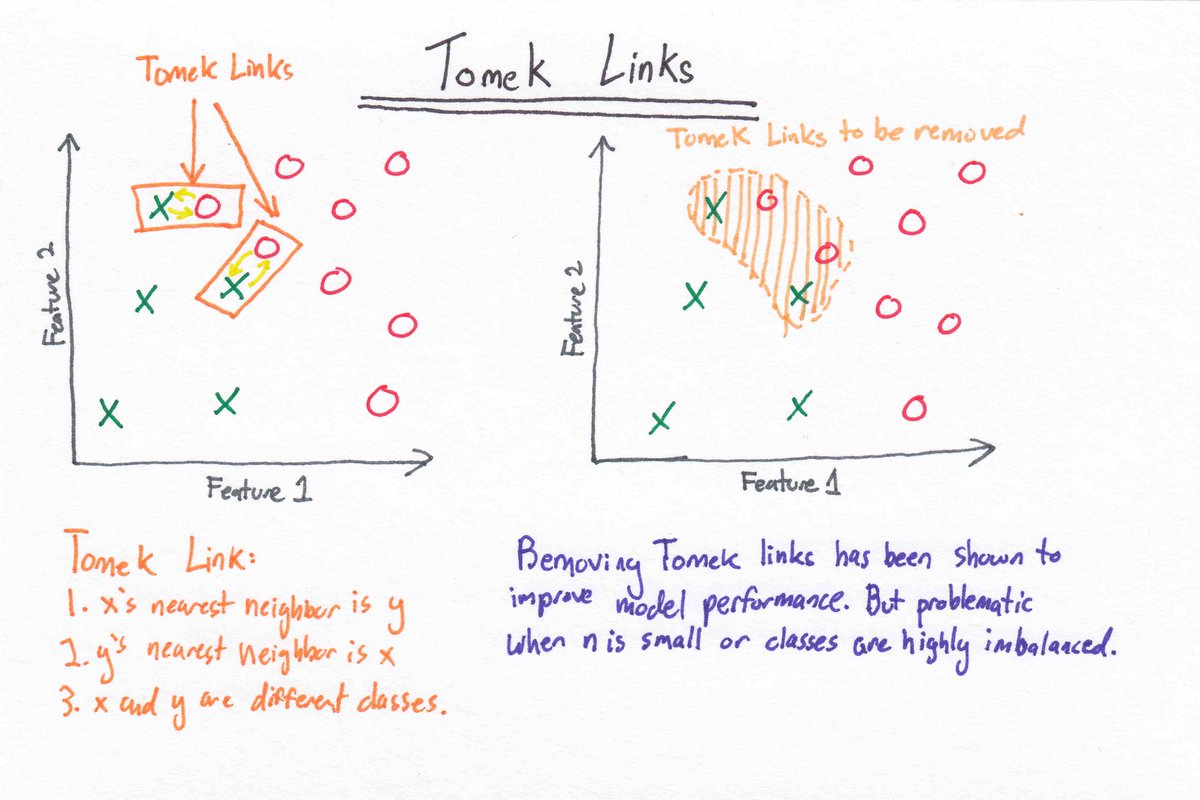 Tomek Links
Tomek Links
Tomek Links to be removed
Feature 2
Feature 1
Feature 2
Feature 1
Tomek Link:
1. x's nearest neighbor is y
2. y's nearest neighbor is x
3. x and y are different classes.
Removing Tomek links has been shown to
improve model performance. But problematic
when n is small or classes are highly imbalanced.